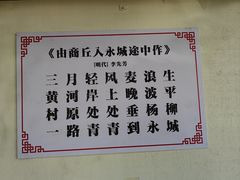 《由商丘入永城途中作》
[明代] 李先芳
三月轻风麦浪生
黄河岸上晚波平
村原处处垂杨柳
一路青青到永城